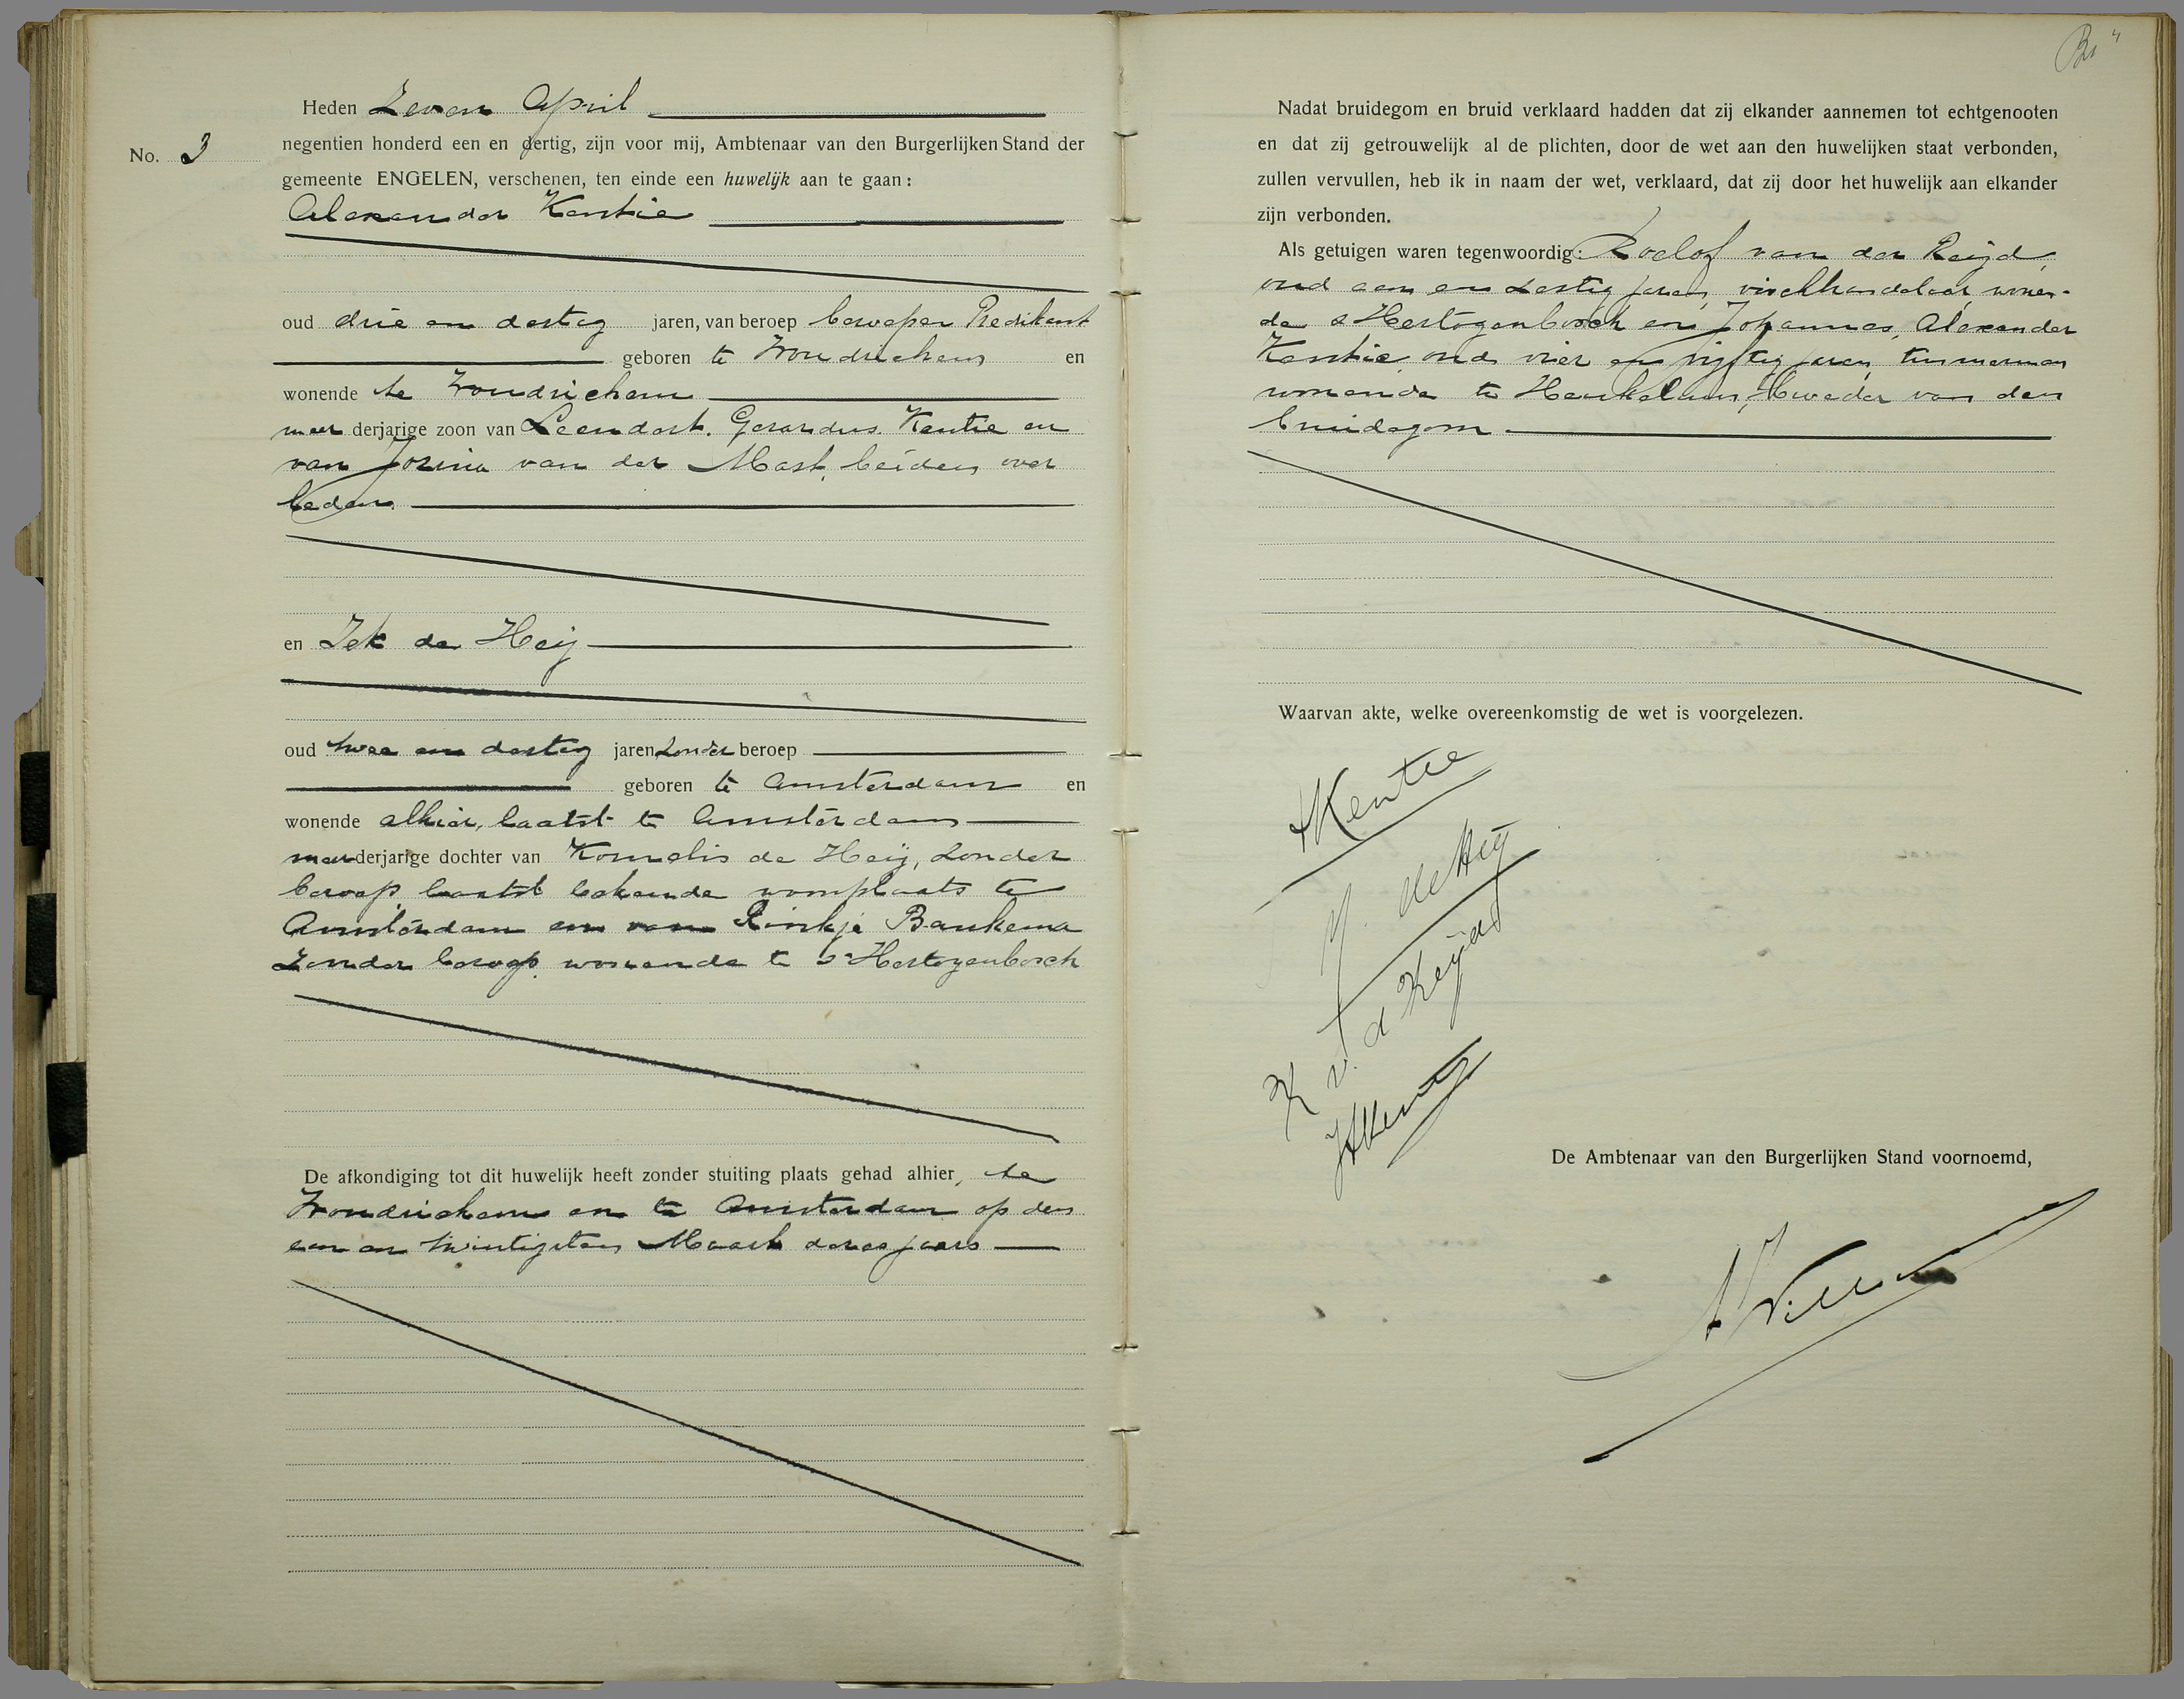 Heden Zeven April
No. 3
negentien honderd een en dertig, zijn voor mij, Ambtenaar van den Burgerlijken Stand der
gemeente ENGELEN, verschenen, ten einde een huwelijk aan te gaan:
Alexander Kentie
oud drie en dertig jaren, van beroep beroepen Predikant
geboren te Woudrichem en
wonende te Woudrichem
meerderjarige zoon van Leendert Gerardus Kentie en
van Jozina van der Mast, beiden over
leden.
en Jek de Heij
oud twee en dertig jaren zonder beroep
geboren te Amsterdam en
wonende alhier, laatst te Amsterdam
meerderjarige dochter van Kornelis de Heij, zonder
beroep, laatst bekende woonplaats te
Amsterdam en van Rinkje Baukema
zonder beroep, wonende te 's Hertogenbosch
De afkondiging tot dit huwelijk heeft zonder stuiting plaats gehad alhier, te
Woudrichem en te Amsterdam op den
een en twintigsten Maart dezes jaars
Nadat bruidegom en bruid verklaard hadden dat zij elkander aannemen tot echtgenooten
en dat zij getrouwelijk al de plichten, door de wet aan den huwelijken staat verbonden,
zullen vervullen, heb ik in naam der wet, verklaard, dat zij door het huwelijk aan elkander
zijn verbonden.
Als getuigen waren tegenwoordig: Roelof van der Reijd,
oud een en zestig jaren, vischhandelaar, wonen-
de 's Hertogenbosch en Johannes Alexander
Kentie, oud vier en vijftig jaren, timmerman
wonende te Heukelum, broeder van den
bruidegom.
Waarvan akte, welke overeenkomstig de wet is voorgelezen.
AKentie
J. de Heij
R v. d Reijd
JAKentie
De Ambtenaar van den Burgerlijken Stand voornoemd,